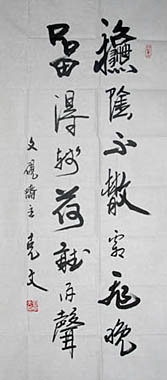 秋陰不散霜飛晚
留得殘荷聽雨聲
文硯齋主克文